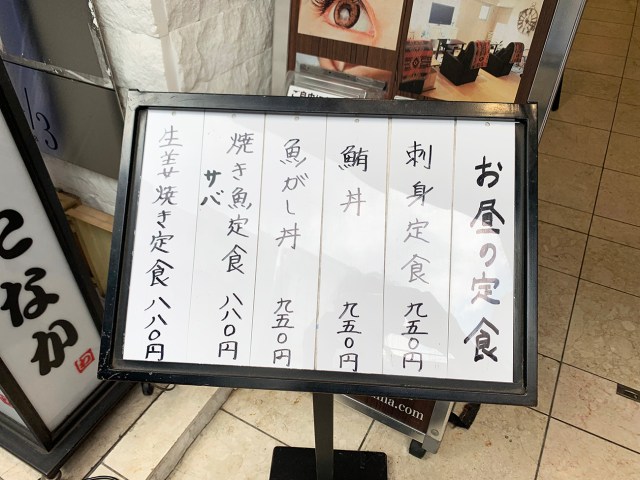 お昼の定食
刺身定食 九五〇円
鮪丼 九五〇円
魚がし丼 九五〇円
焼き魚定食 八八〇円
サバ
生姜焼き定食 八八〇円
なか